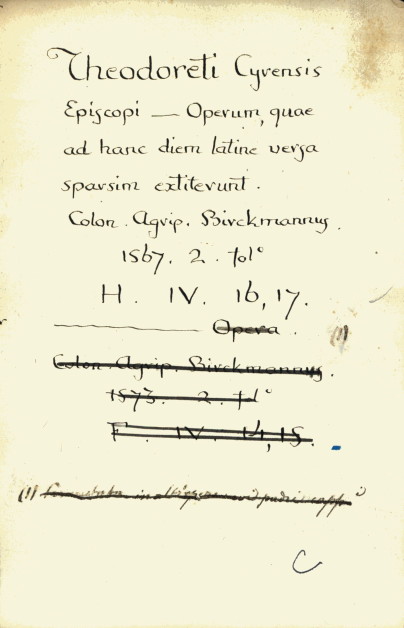 Theodoreti Cyrensis
Episcopi — Operum, quae
ad hanc diem latine versa
sparsim extiterunt.
Colon. Agrip. Birckmannus.
1567. 2. fol°
H. IV. 16, 17.
Opera. (1)
Colon. Agrip. Birckmannus.
1573. 2. fol°
F. IV. 14, 15.
(1)
C